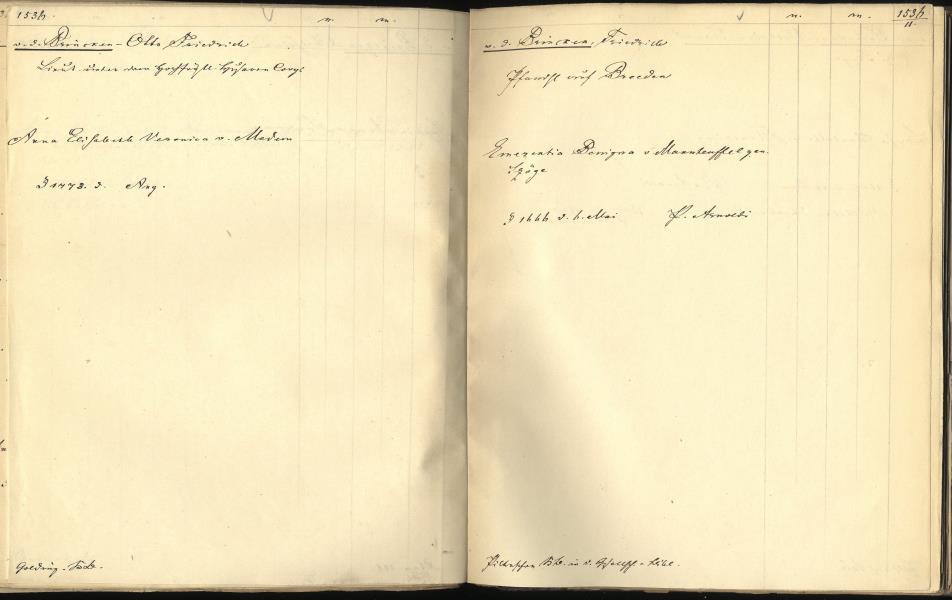 1536.
v. d. Brincken - Otto Friedrich
Lieut. unter dem Hochfürstl. Husaren Corps
Anna Elisabeth Veronica v. Medem
§ 1773. d. Aug.
Golding.
n.
m.
n.
m.
1536
II
v. d. Brincken, Friedrich
Pfandh. auf Breeden
Emerentia Benigna v Mannteuffel gen.
Szöge
§ 1666 d. 6. Mai P. Arnoldi